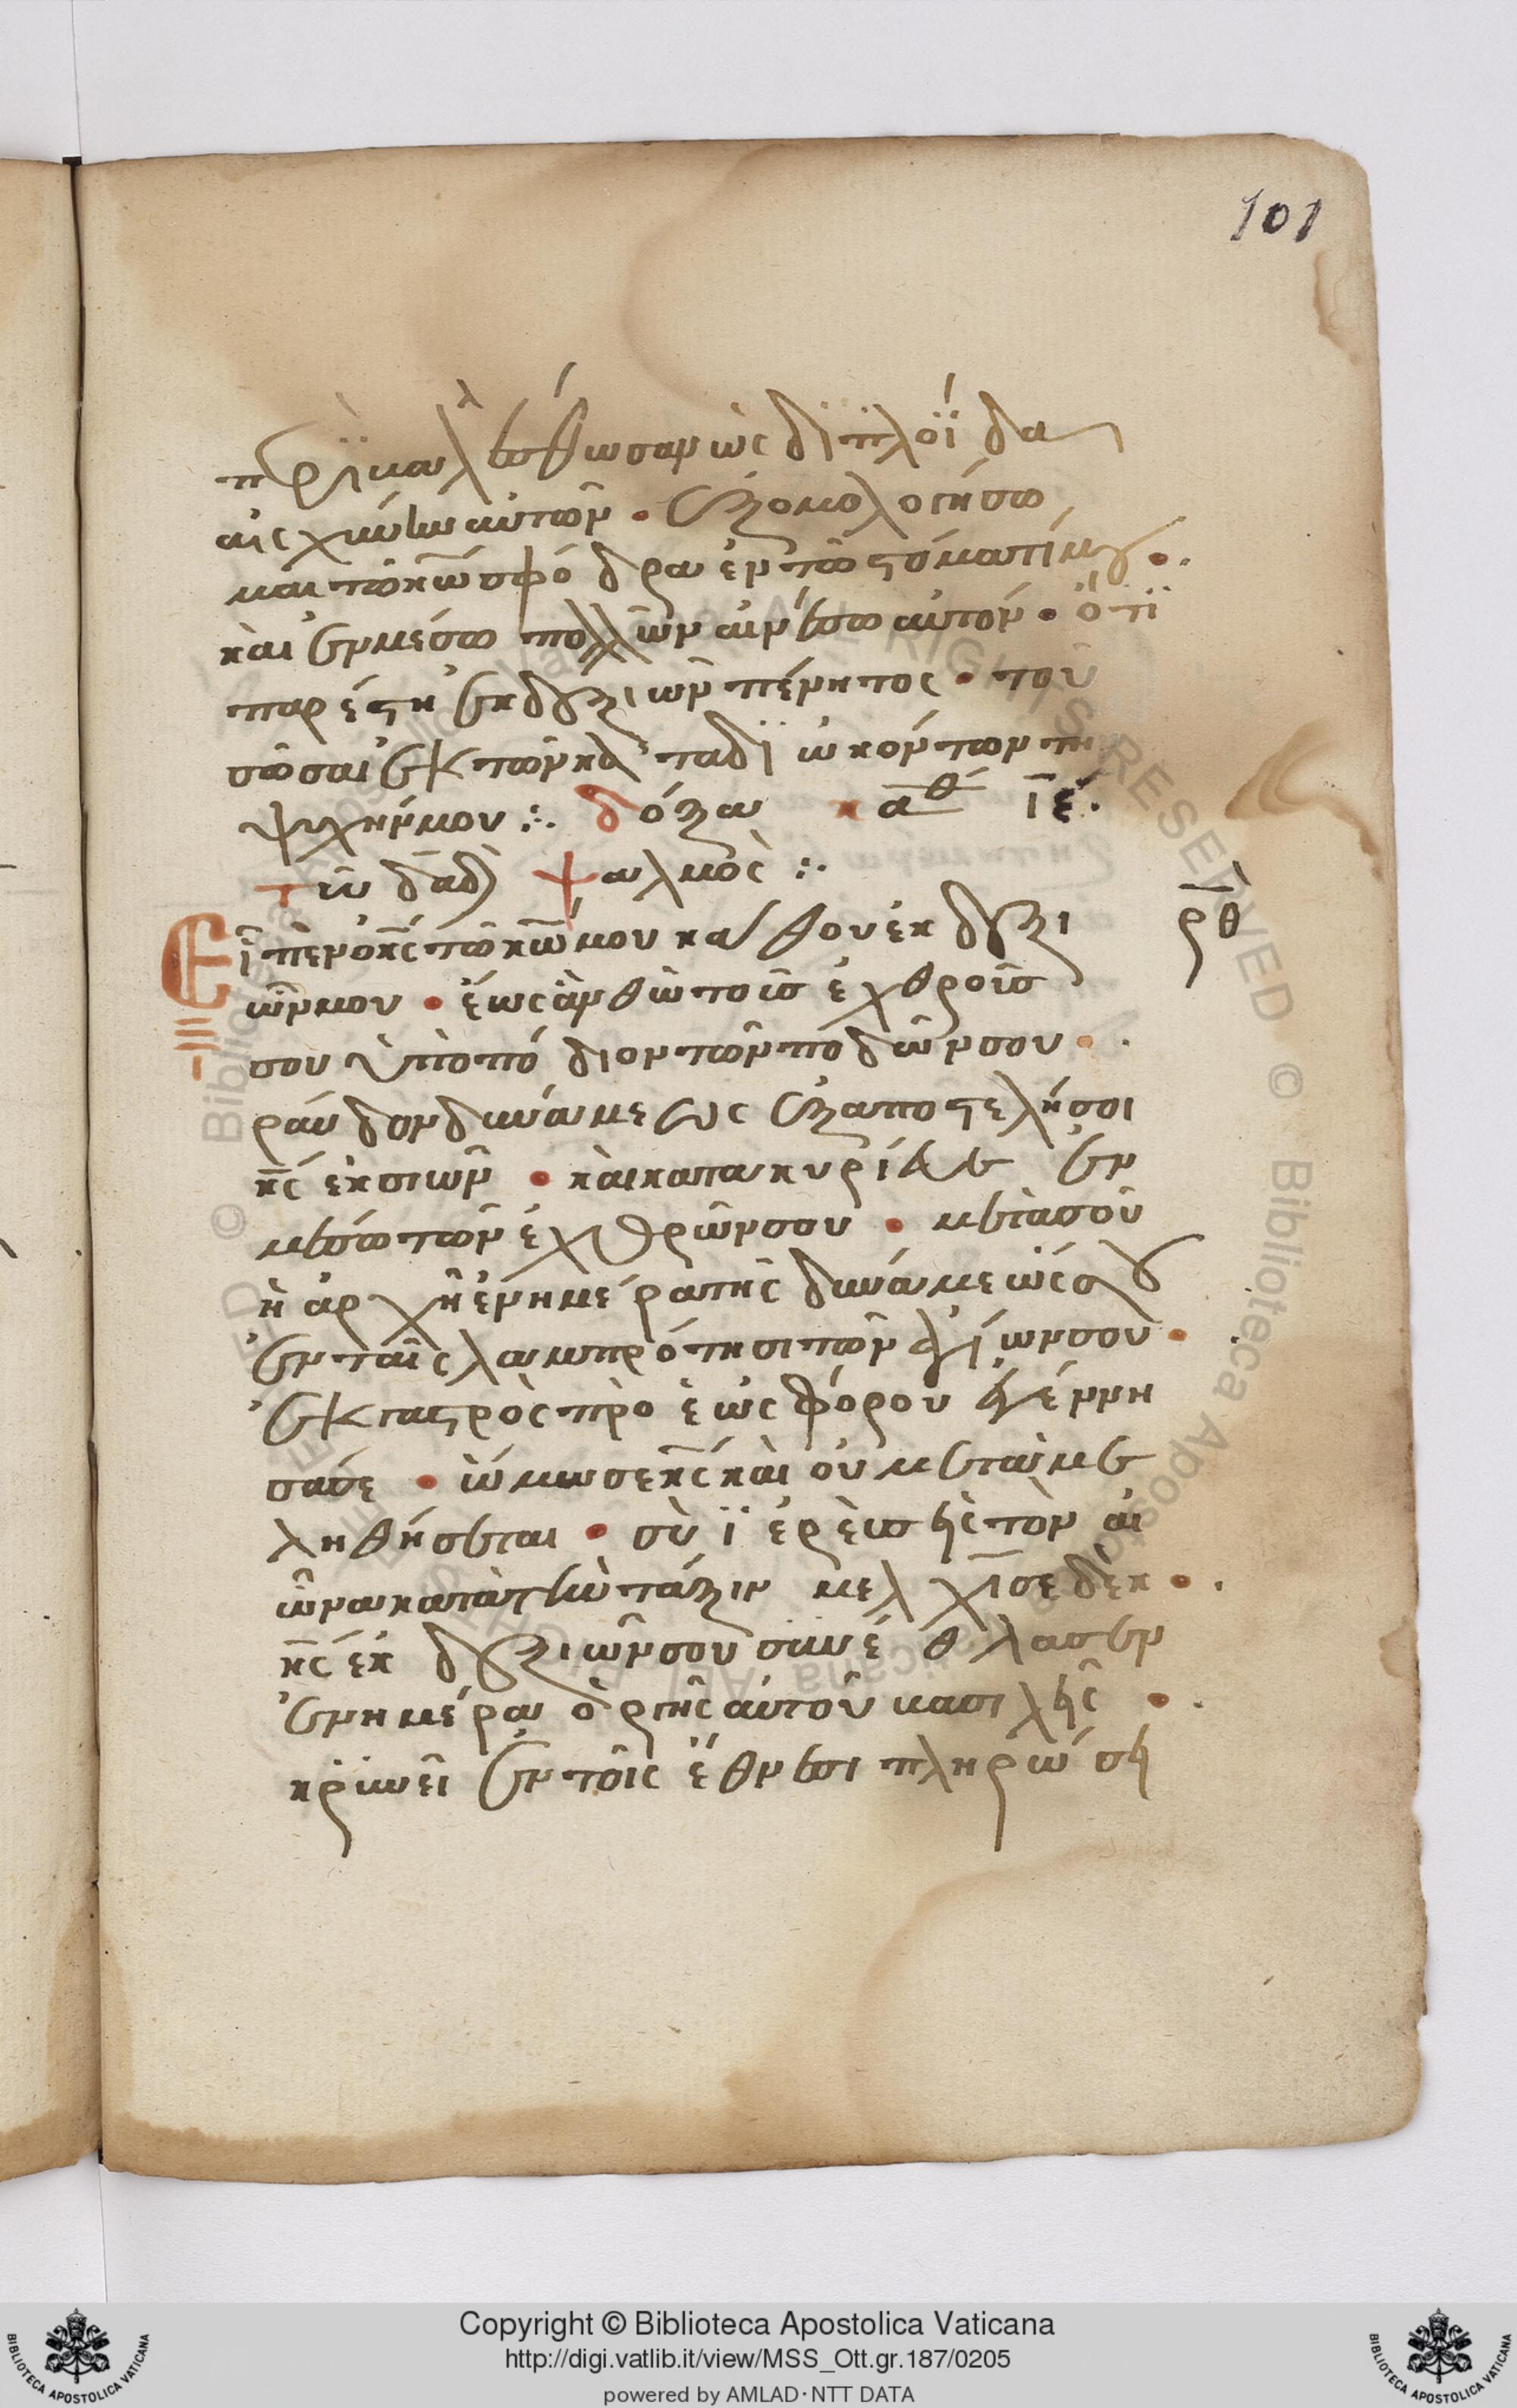 101
περιβαλέσθωσαν ὡς διπλοΐδα
αἰσχύνην αὐτῶν • ἐξομολογήσο
μαι τῶ κω σφόδρα ἐν τῶ στόματί μου •.
καὶ ἐν μέσω πολλῶν αἰνέσω αὐτόν • ὅτι
παρέστη ἐκ δεξιῶν πένητος • τοῦ
σῶσαι ἐκ τῶν καταδιωκόντων τὴ
ψυχήν μου ∴ δόξα κ αθ ιε.
τῶ δαδ ψαλμὸς ∴
Εἶπεν ὁ κς τῶ κω μου κάθου ἐκ δεξι
ρθ
ῶν μου • ἕως ἂν θῶ τοὺς ἐχθρούς
σου ὑποπόδιον τῶν ποδῶν σου •.
ράυδον δυνάμεως ἐξαποστελῆ σοι
κς ἐκ σιών • καὶ κατακυρίευε ἐν
μέσω τῶν ἐχθρῶν σου • μετὰ σοῦ
ἡ ἀρχὴ ἐν ημέρα τῆς δυνάμεώς σου
ἐν ταῖς λαμπρότησι τῶν ἁγίων σου •.
ἐκ γαστρὸς πρὸ ἑωσφόρου ἐγέννη
σά σε • ὤμωσε κς καὶ οὐ μεταμε
ληθήσεται • σὺ ἱερεὺς εἰς τὸν αἰ
ῶνα κατὰ τὴν τάξιν μελχισεδέκ •.
κς ἐκ δεξιῶν σου συνέθλασεν
ἐν ημέρα ὀργῆς αὐτοῦ βασιλεῖς •.
κρινεῖ ἐν τοῖς ἔθνεσι πληρώσει
Copyright © Biblioteca Apostolica Vaticana
http://digi.vatlib.it/view/MSS_Ott.gr.187/0205
powered by AMLAD·NTT DATA
BIBLIOTECA APOSTOLICA VATICANA
BIBLIOTECA APOSTOLICA VATICANA